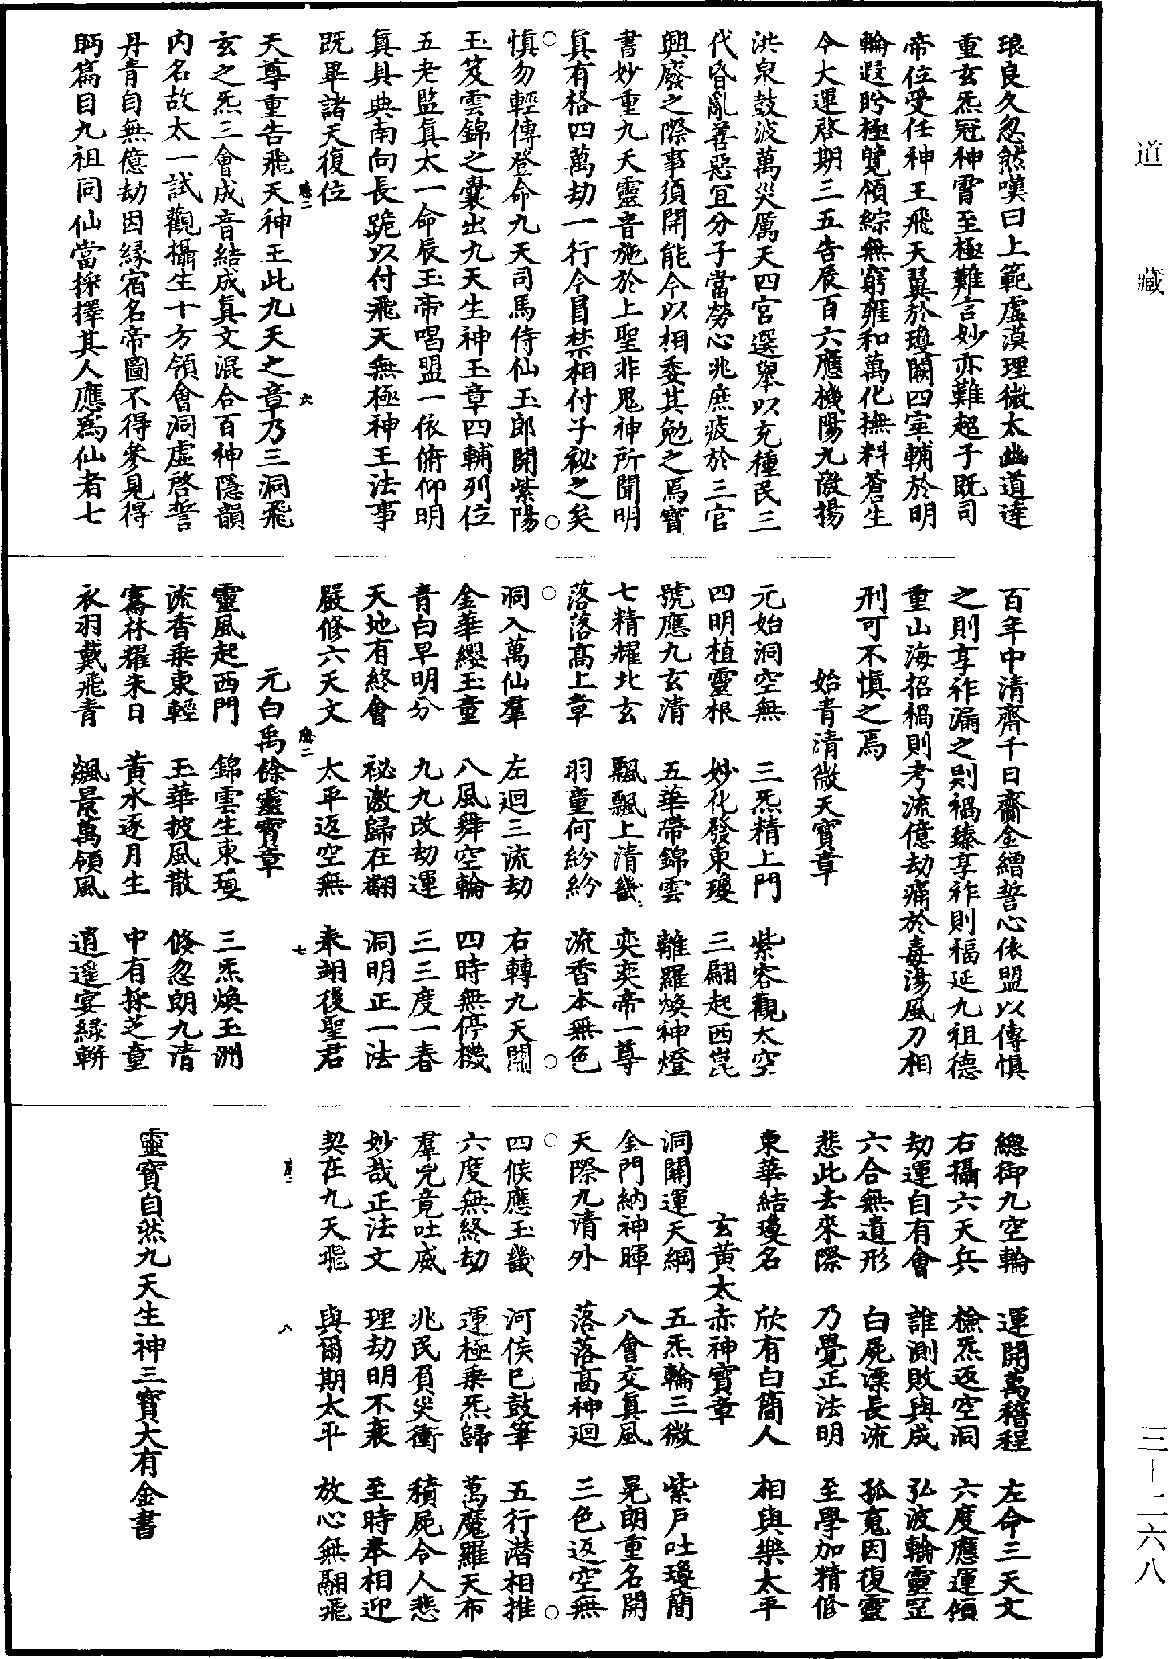 道藏
琅良久忽然嘆曰上範虛漠理微太幽道達
重玄炁冠神霄至極難言妙亦難超子既司
帝位受任神王飛天翼於瓊闕四宰輔於明
輪蹑眇極覽領綜無窮雍和萬化撫料蒼生
今大運啓期三五告辰百六應機陽九激揚
洪泉鼓波萬災厲天四官選舉以充種民三
代昏亂善惡宜分子當勞心兆庶疲於三官
興廢之際事須開能今以相委其勉之焉寶
書妙重九天靈音施於上聖非鬼神所聞明
真有格四萬劫一行今冒禁相付子祕之矣
慎勿輕傳登命九天司馬侍仙玉郎開紫陽
玉笈雲錦之囊出九天生神玉章四輔列位
五老監真太一命辰玉帝唱盟一依俯仰明
真具典南向長跪以付飛天無極神王法事
既畢諸天復位
天尊重告飛天神王此九天之章乃三洞飛
玄之炁三會成音結成真文混合百神隱韻
內名故太一試觀攝生十方領會洞虛啓誓
丹青自無億劫因緣宿名帝圖不得參見得
眄篇目九祖同仙當採擇其人應爲仙者七
百年中清齋千日齎金繒誓心依盟以傳慎
之則享祚漏之則禍臻享祚則福延九祖德
重山海招禍則考流億劫痛於毒湯風刀相
刑可不慎之焉
始青清微天寶章
元始洞空無 三炁精上門 紫容觀太空
四明植靈根 妙化發東瓊 三翮起西崑
號應九玄清 五華帶錦雲 離羅煥神燈
七精耀北玄 飄飄上清畿 奕奕帝一尊
落落高上章 羽童何紛紛 流香本無色
洞入萬仙羣 左迴三流劫 右轉九天關
金華纓玉童 八風舞空輪 四時無停機
青白早明分 九九改劫運 三三度一春
天地有終會 祕漱歸在翮 洞明正一法
嚴修六天文 太平返空無 奉翊後聖君
元白禹餘靈寶章
靈風起西門 錦雲生東瓊 三炁煥玉洲
流香乘東輕 玉華披風散 倏忽朗九清
騫林耀朱日 黃水逐月生 中有採芝童
衣羽戴飛青 飆景萬領風 逍遙宴綠軿
總御九空輪 運開萬稽程 左命三天文
右攝六天兵 檢炁返空洞 六度應運傾
劫運自有會 誰測敗與成 弘波輪靈罡
六合無遺形 白屍漂長流 孤䰟因復靈
悲此去來際 乃覺正法明 至學加精修
東華結瓊名 欣有白簡人 相與樂太平
玄黃太赤神寶章
洞關運天綱 五炁輪三微 紫戶吐瓊蘭
金門納神暉 八會交真風 晃朗重名開
天際九清外 落落高神迴 三色返空無
四候應玉畿 河侯已鼓筆 五行潛相推
六度無終劫 運極乘炁歸 萬魔羅天布
羣兇竟吐威 兆民負災衝 積屍令人悲
妙哉正法文 理劫明不衰 至時奉相迎
契在九天飛 與爾期太平 放心無翮飛
靈寶自然九天生神三寶大有金書
六
七
八
三–二六八